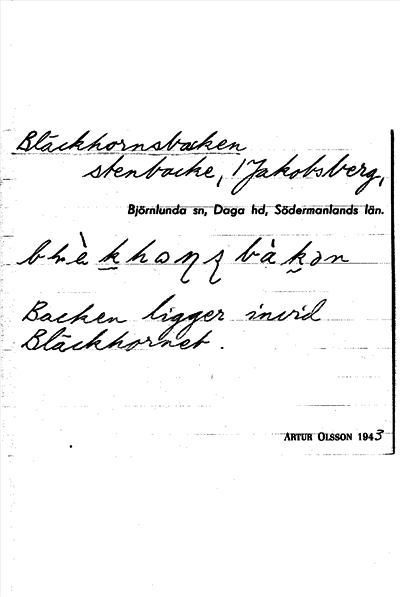 Bläckhornsbacken
stenbacke, / Jakobsberg,
Björnlunda sn, Daga hd, Södermanlands län.
Backen ligger invid
Bläckhornet.
ARTUR OLSSON 1943